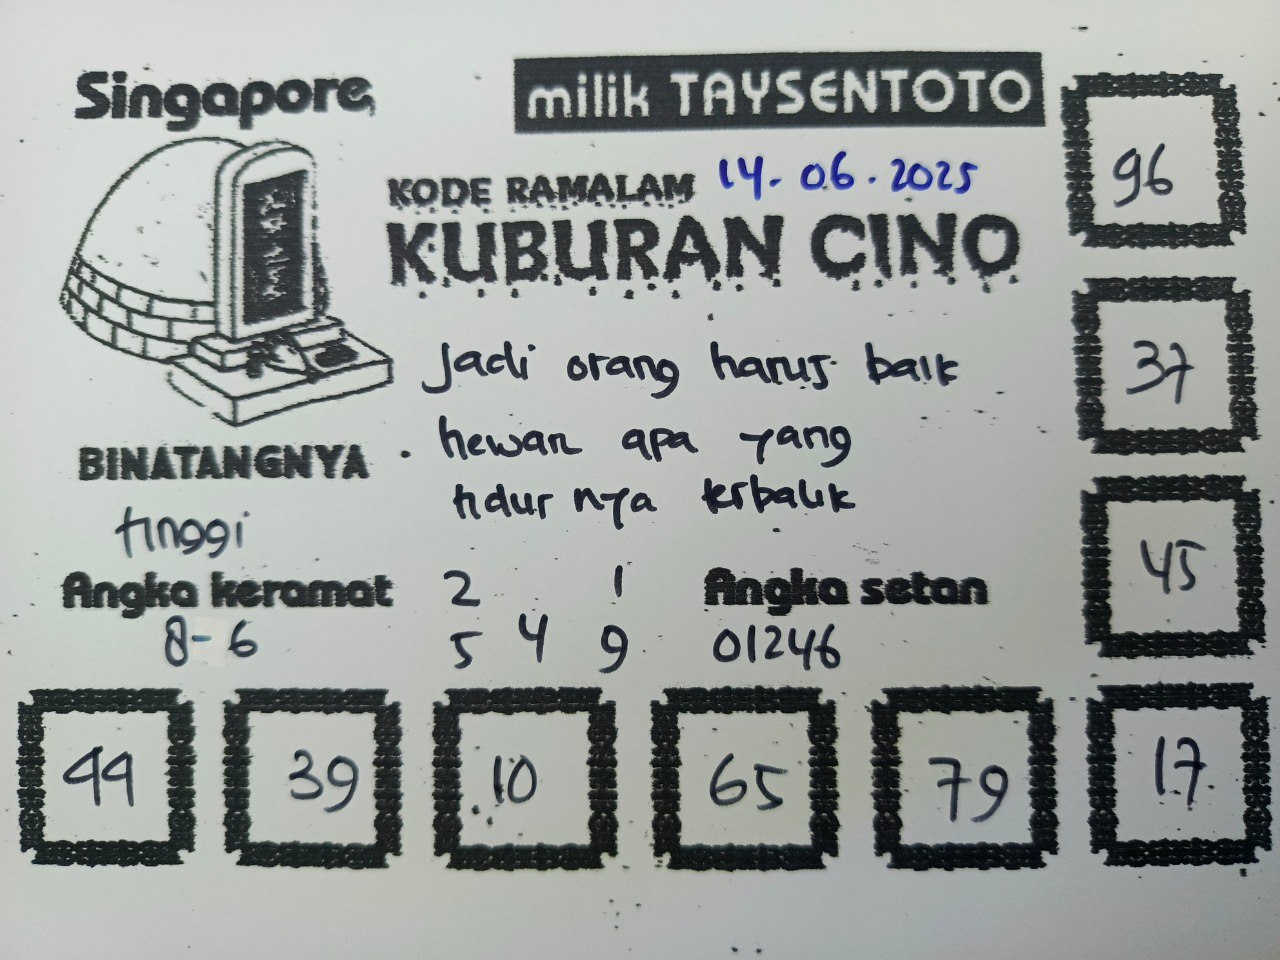 Singapore,
milik TAYSENTOTO
KODE RAMALAM 14.06.2025
KUBURAN CINO
Jadi orang harus baik
hewan apa yang
tidur nya terbalik
BINATANGNYA
tinggi
Angka keramat
8-6
2 1
5 4 9
Angka setan
01246
96
37
45
44
39
10
65
79
17